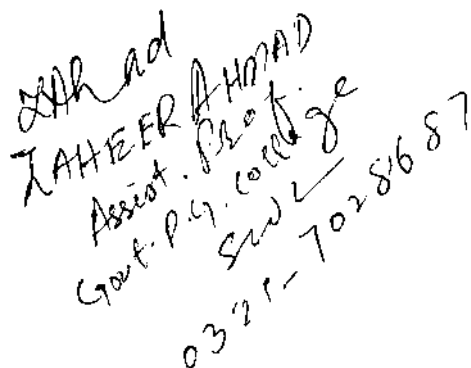 ZAHEER AHMAD
Assist. Prof.
Govt. P.G. College
SWL
0321-7028687